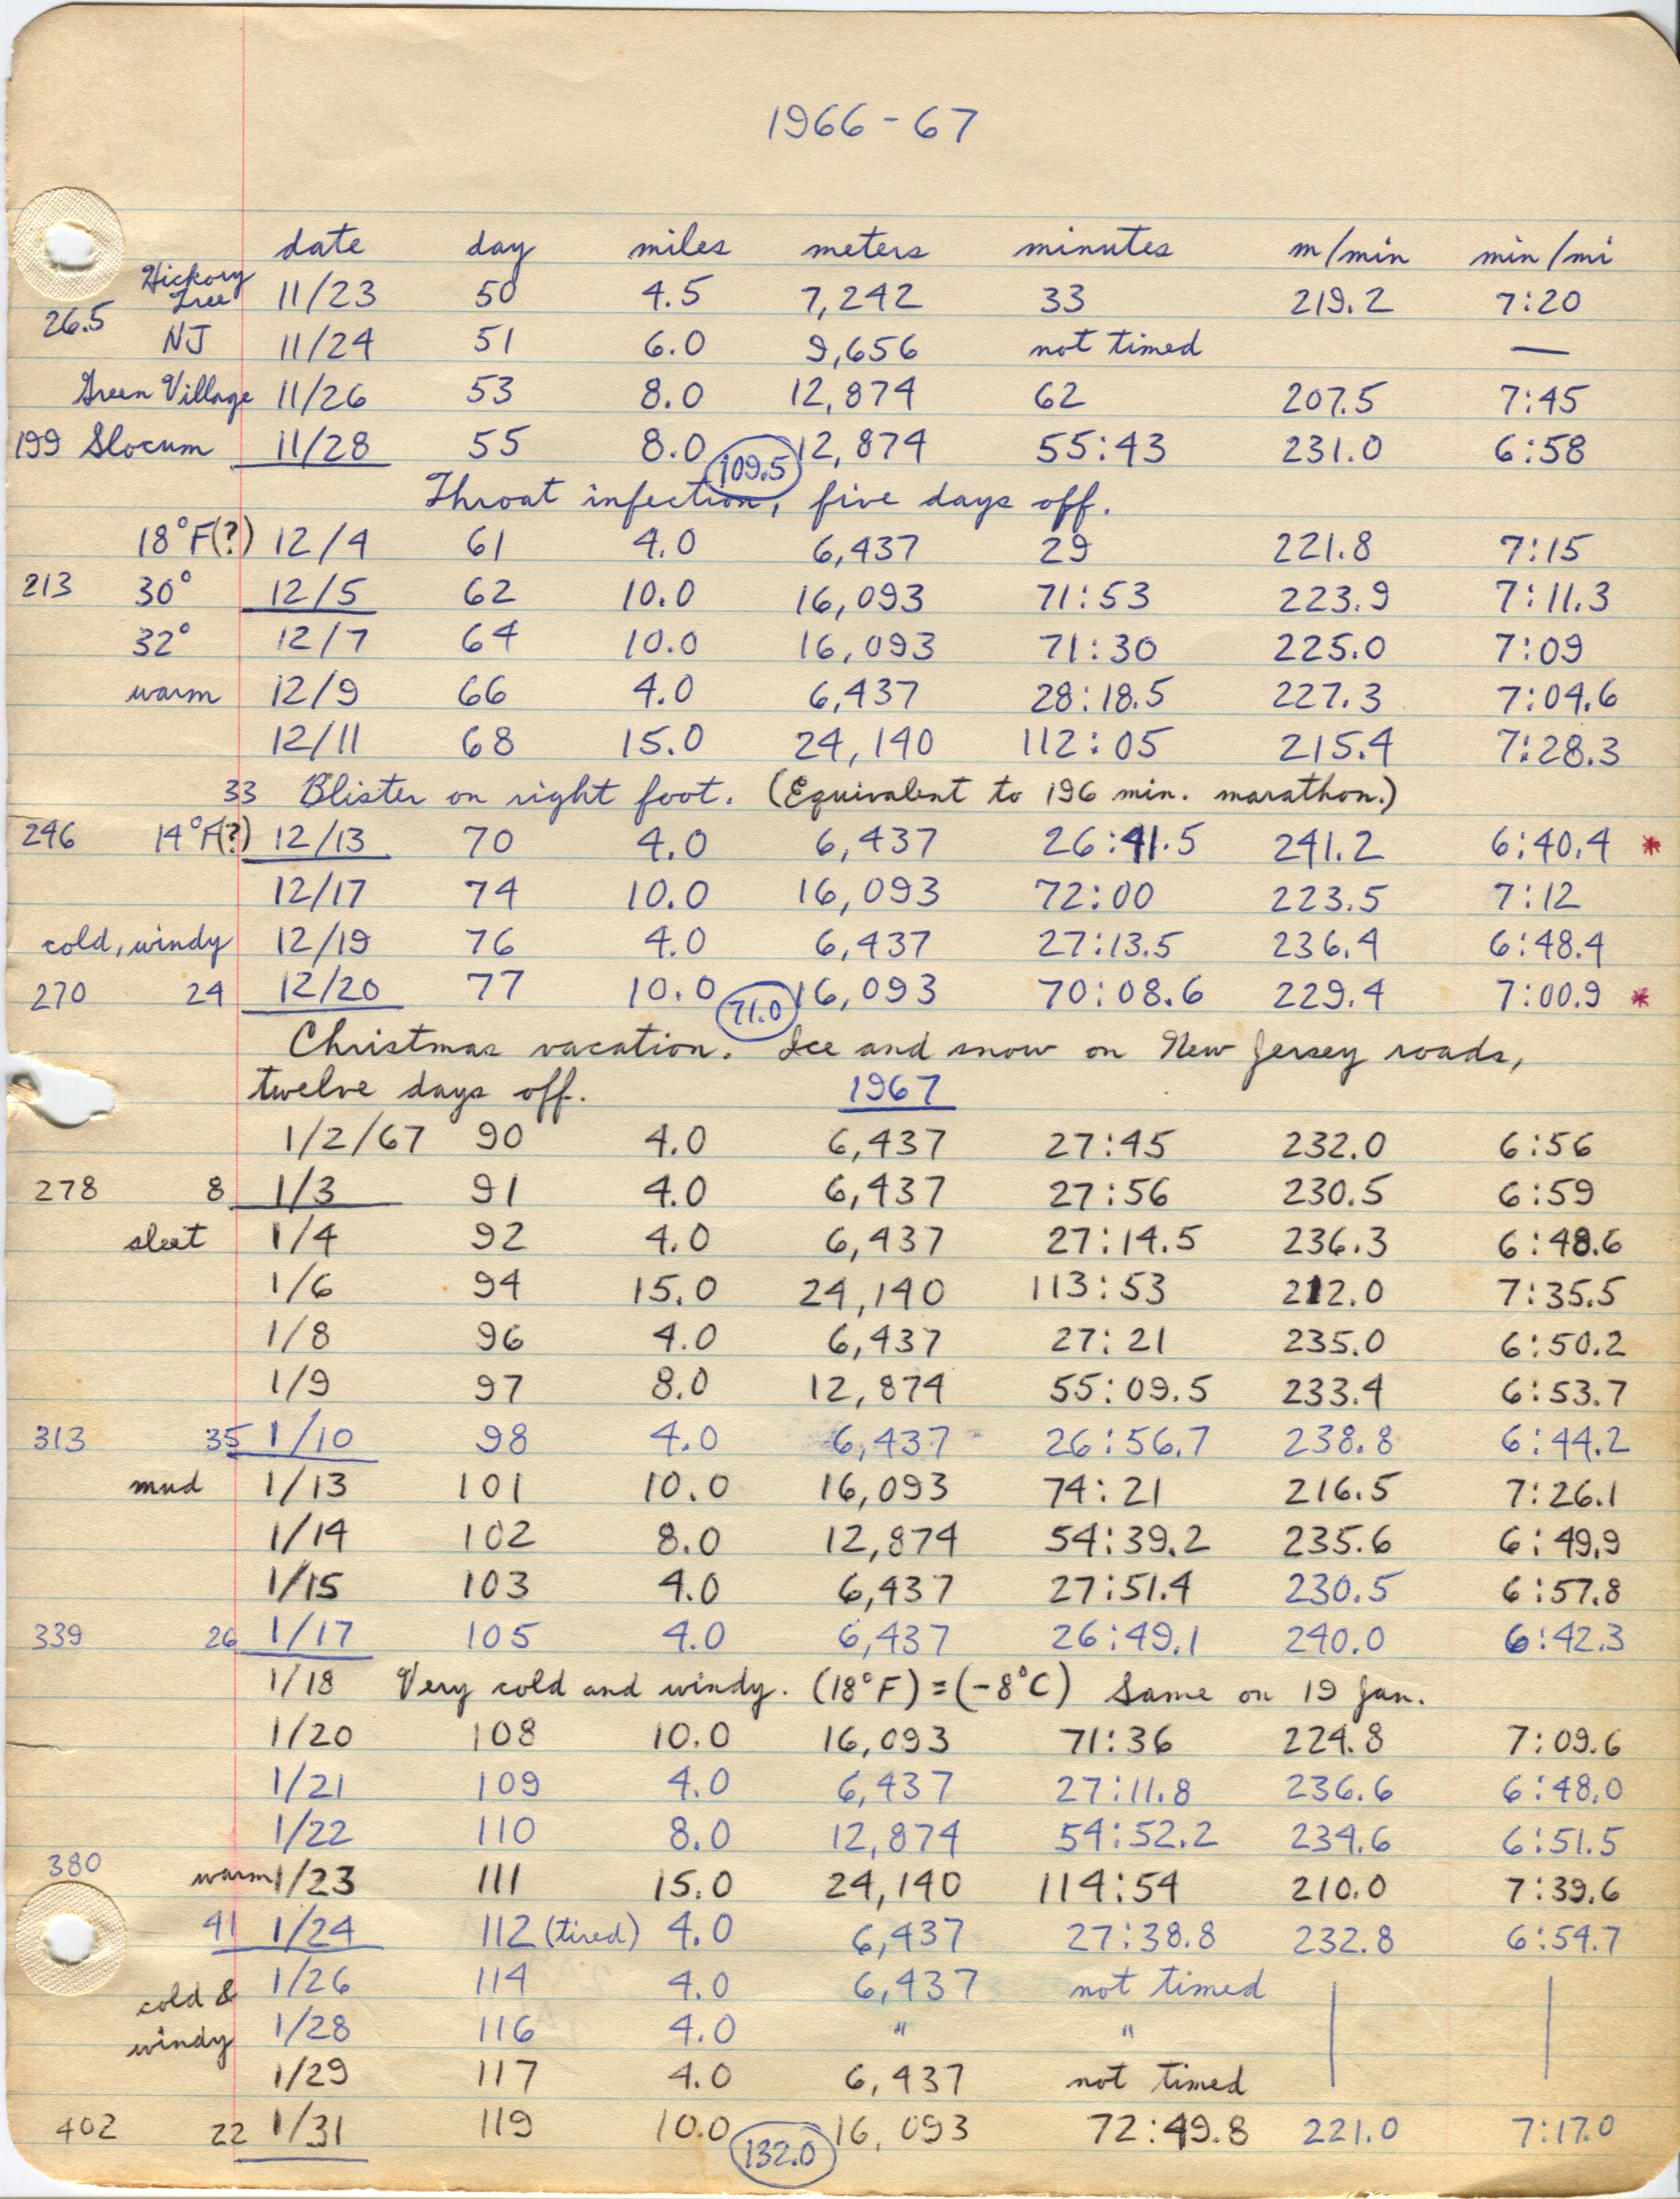 1966-67
date day miles meters minutes m/min min/mi
Hickory
Tree 11/23 50 4.5 7,242 33 219.2 7:20
26.5
NJ 11/24 51 6.0 9,656 not timed —
Green Village 11/26 53 8.0 12,874 62 207.5 7:45
199 Slocum 11/28 55 8.0 12,874 55:43 231.0 6:58
109.5
Throat infection, five days off.
18°F(?) 12/4 61 4.0 6,437 29 221.8 7:15
213 30° 12/5 62 10.0 16,093 71:53 223.9 7:11.3
32° 12/7 64 10.0 16,093 71:30 225.0 7:09
warm 12/9 66 4.0 6,437 28:18.5 227.3 7:04.6
12/11 68 15.0 24,140 112:05 215.4 7:28.3
33 Blister on right foot. (Equivalent to 196 min. marathon.)
246 14°F(?) 12/13 70 4.0 6,437 26:41.5 241.2 6:40.4 *
12/17 74 10.0 16,093 72:00 223.5 7:12
cold, windy 12/19 76 4.0 6,437 27:13.5 236.4 6:48.4
270 24 12/20 77 10.0 16,093 70:08.6 229.4 7:00.9 *
71.0
Christmas vacation. Ice and snow on New Jersey roads,
twelve days off. 1967
1/2/67 90 4.0 6,437 27:45 232.0 6:56
278 8 1/3 91 4.0 6,437 27:56 230.5 6:59
sleet 1/4 92 4.0 6,437 27:14.5 236.3 6:48.6
1/6 94 15.0 24,140 113:53 212.0 7:35.5
1/8 96 4.0 6,437 27:21 235.0 6:50.2
1/9 97 8.0 12,874 55:09.5 233.4 6:53.7
313 35 1/10 98 4.0 6,437 26:56.7 238.8 6:44.2
mud 1/13 101 10.0 16,093 74:21 216.5 7:26.1
1/14 102 8.0 12,874 54:39.2 235.6 6:49.9
1/15 103 4.0 6,437 27:51.4 230.5 6:57.8
339 26 1/17 105 4.0 6,437 26:49.1 240.0 6:42.3
1/18 Very cold and windy. (18°F)=(-8°C) Same on 19 Jan.
1/20 108 10.0 16,093 71:36 224.8 7:09.6
1/21 109 4.0 6,437 27:11.8 236.6 6:48.0
1/22 110 8.0 12,874 54:52.2 234.6 6:51.5
380
warm 1/23 111 15.0 24,140 114:54 210.0 7:39.6
41 1/24 112 (tired) 4.0 6,437 27:38.8 232.8 6:54.7
cold & 1/26 114 4.0 6,437 not timed
windy 1/28 116 4.0 " "
1/29 117 4.0 6,437 not timed
402 22 1/31 119 10.0 16,093 72:49.8 221.0 7:17.0
132.0